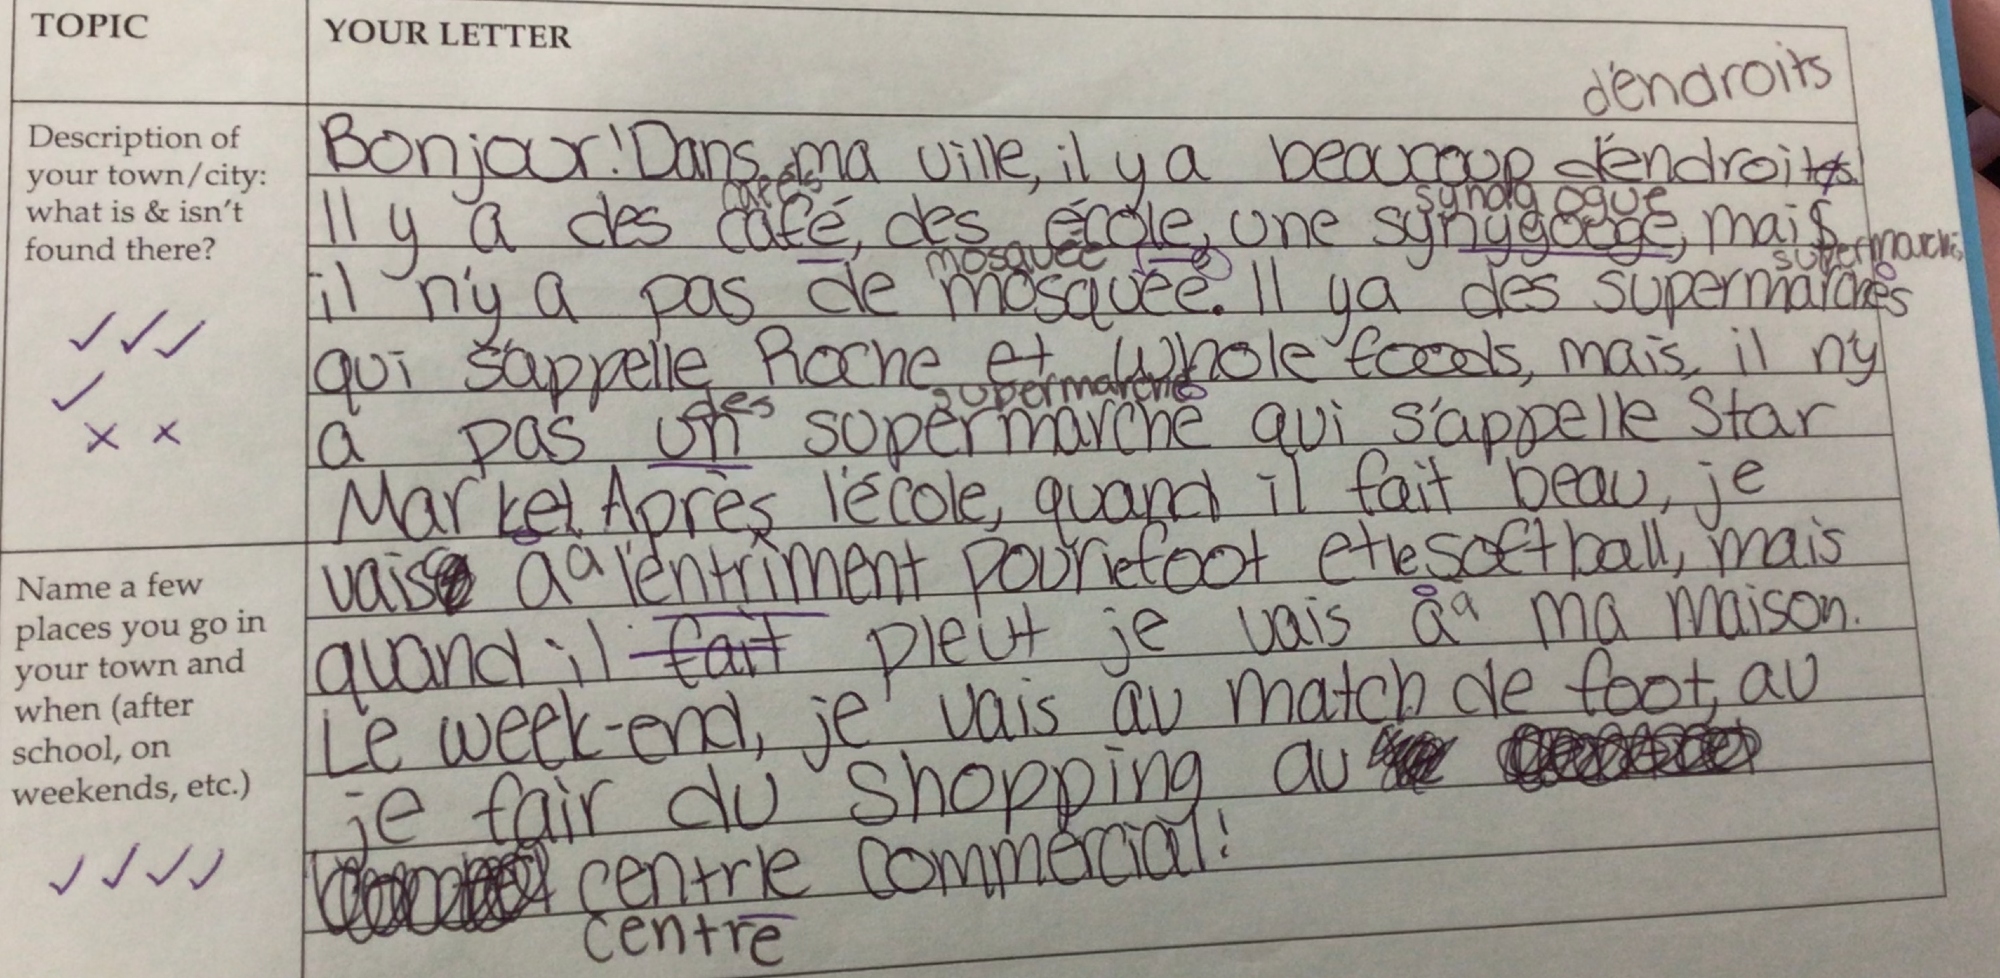 TOPIC
YOUR LETTER
d'endroits
Description of
your town/city:
what is & isn't
found there?
Bonjour! Dans ma ville, il y a beaucoup d'endroits.
cafés
synagogue
Il y a des café, des école, une synygoege, mais
mosquée
supermarchés
il n'y a pas de mosquée. Il ya des supermarchés
qui s'appelle Roche et Whole foods, mais, il n'y
des supermarchés
a pas un supermarche qui s'appelle Star
Market. Après l'école, quand il fait beau, je
Name a few
places you go in
your town and
when (after
school, on
weekends, etc.)
vais à a l'entriment pour le foot et le softball, mais
quand il fait pleut je vais à a ma maison.
Le week-end, je vais au match de foot, au
je fair du shopping au
centrle commercial!
centre